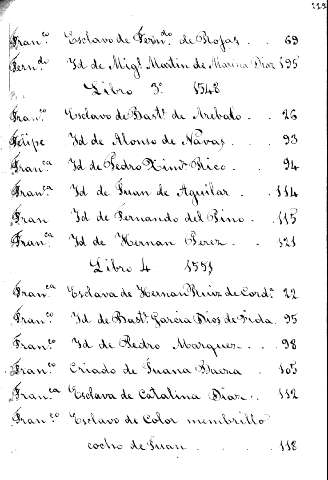 Fran.co Esclavo de Fern.do de Rojas . . 69
Fern.do Id de Mig.l Martin de Marina Diaz 195
Libro 3.o 1548
Fran.co Esclavo de Bast.n de Arebalo . . 26
Felipe Id de Alonso de Navas . . 93
Fran.ca Id de Pedro Xim.z Rico . . 94
Fran.ca Id de Juan de Aguilar . . 114
Fran Id de Fernando del Pino . . 115
Fran.ca Id de Hernan Perez . . . 121
Libro 4 1551
Fran.ca Esclava de Hernan Ruiz de Cord.a 22
Fran.co Id de Bast.n Garcia Dios de Fida. 95
Fran.co Id de Pedro Marquez . . 98
Fran.co Criado de Juana Baera . . 105
Fran.ca Esclava de Catalina Diaz . . 112
Fran.co Esclavo de Color membrillo
cocho de Juan . . . 118